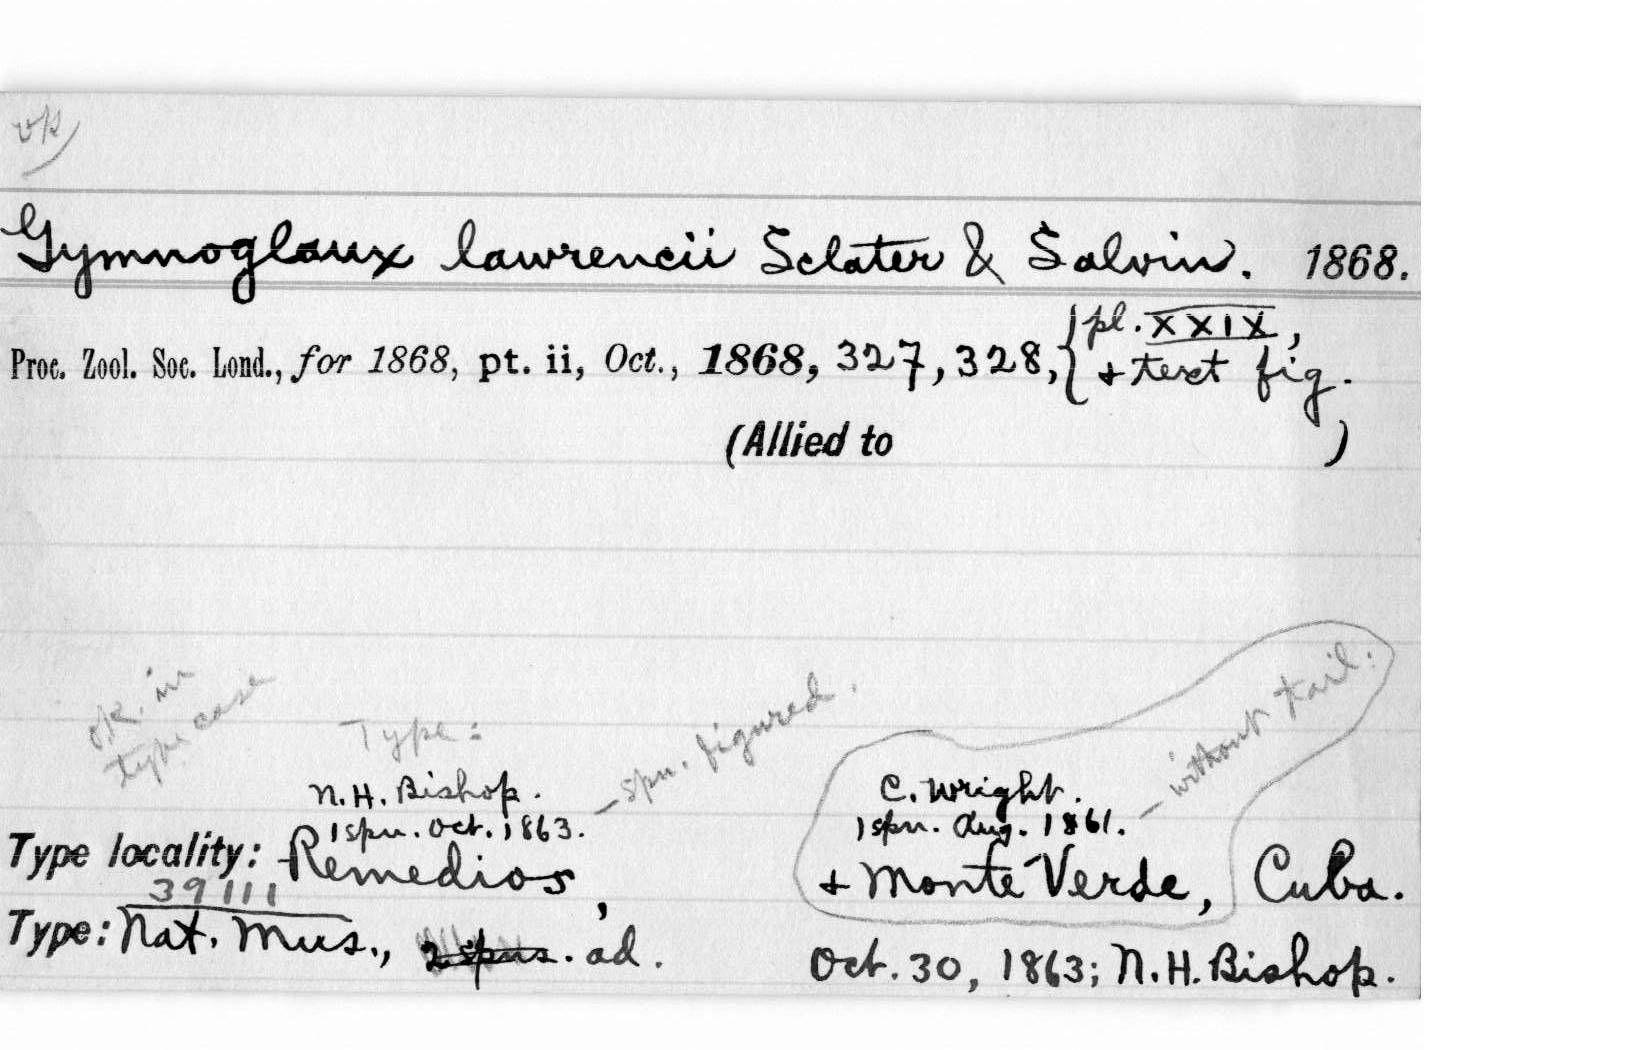 ok
Gymnoglaux lawrencii Sclater & Salvin. 1868.
Proc. Zool. Soc. Lond., for 1868, pt. ii, Oct., 1868, 327, 328, { pl. XXIX,
+ text fig.
(Allied to )
ok. in
type case
Type:
— spn. figured.
— without tail.
N. H. Bishop.
1 spn. Oct. 1863.
C. Wright.
1 spn. Aug. 1861.
Type locality: Remedios, + Monte Verde, Cuba.
39111
Type: Nat. Mus., 2 spns. ad. Oct. 30, 1863; N. H. Bishop.